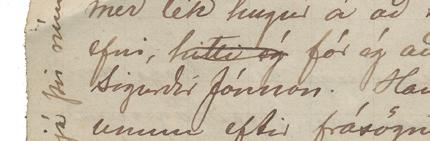 mér lék hugur á að
efni, hitti ég fór ég að
Sigurðir Jónsson. Han
unum eftir frásögn